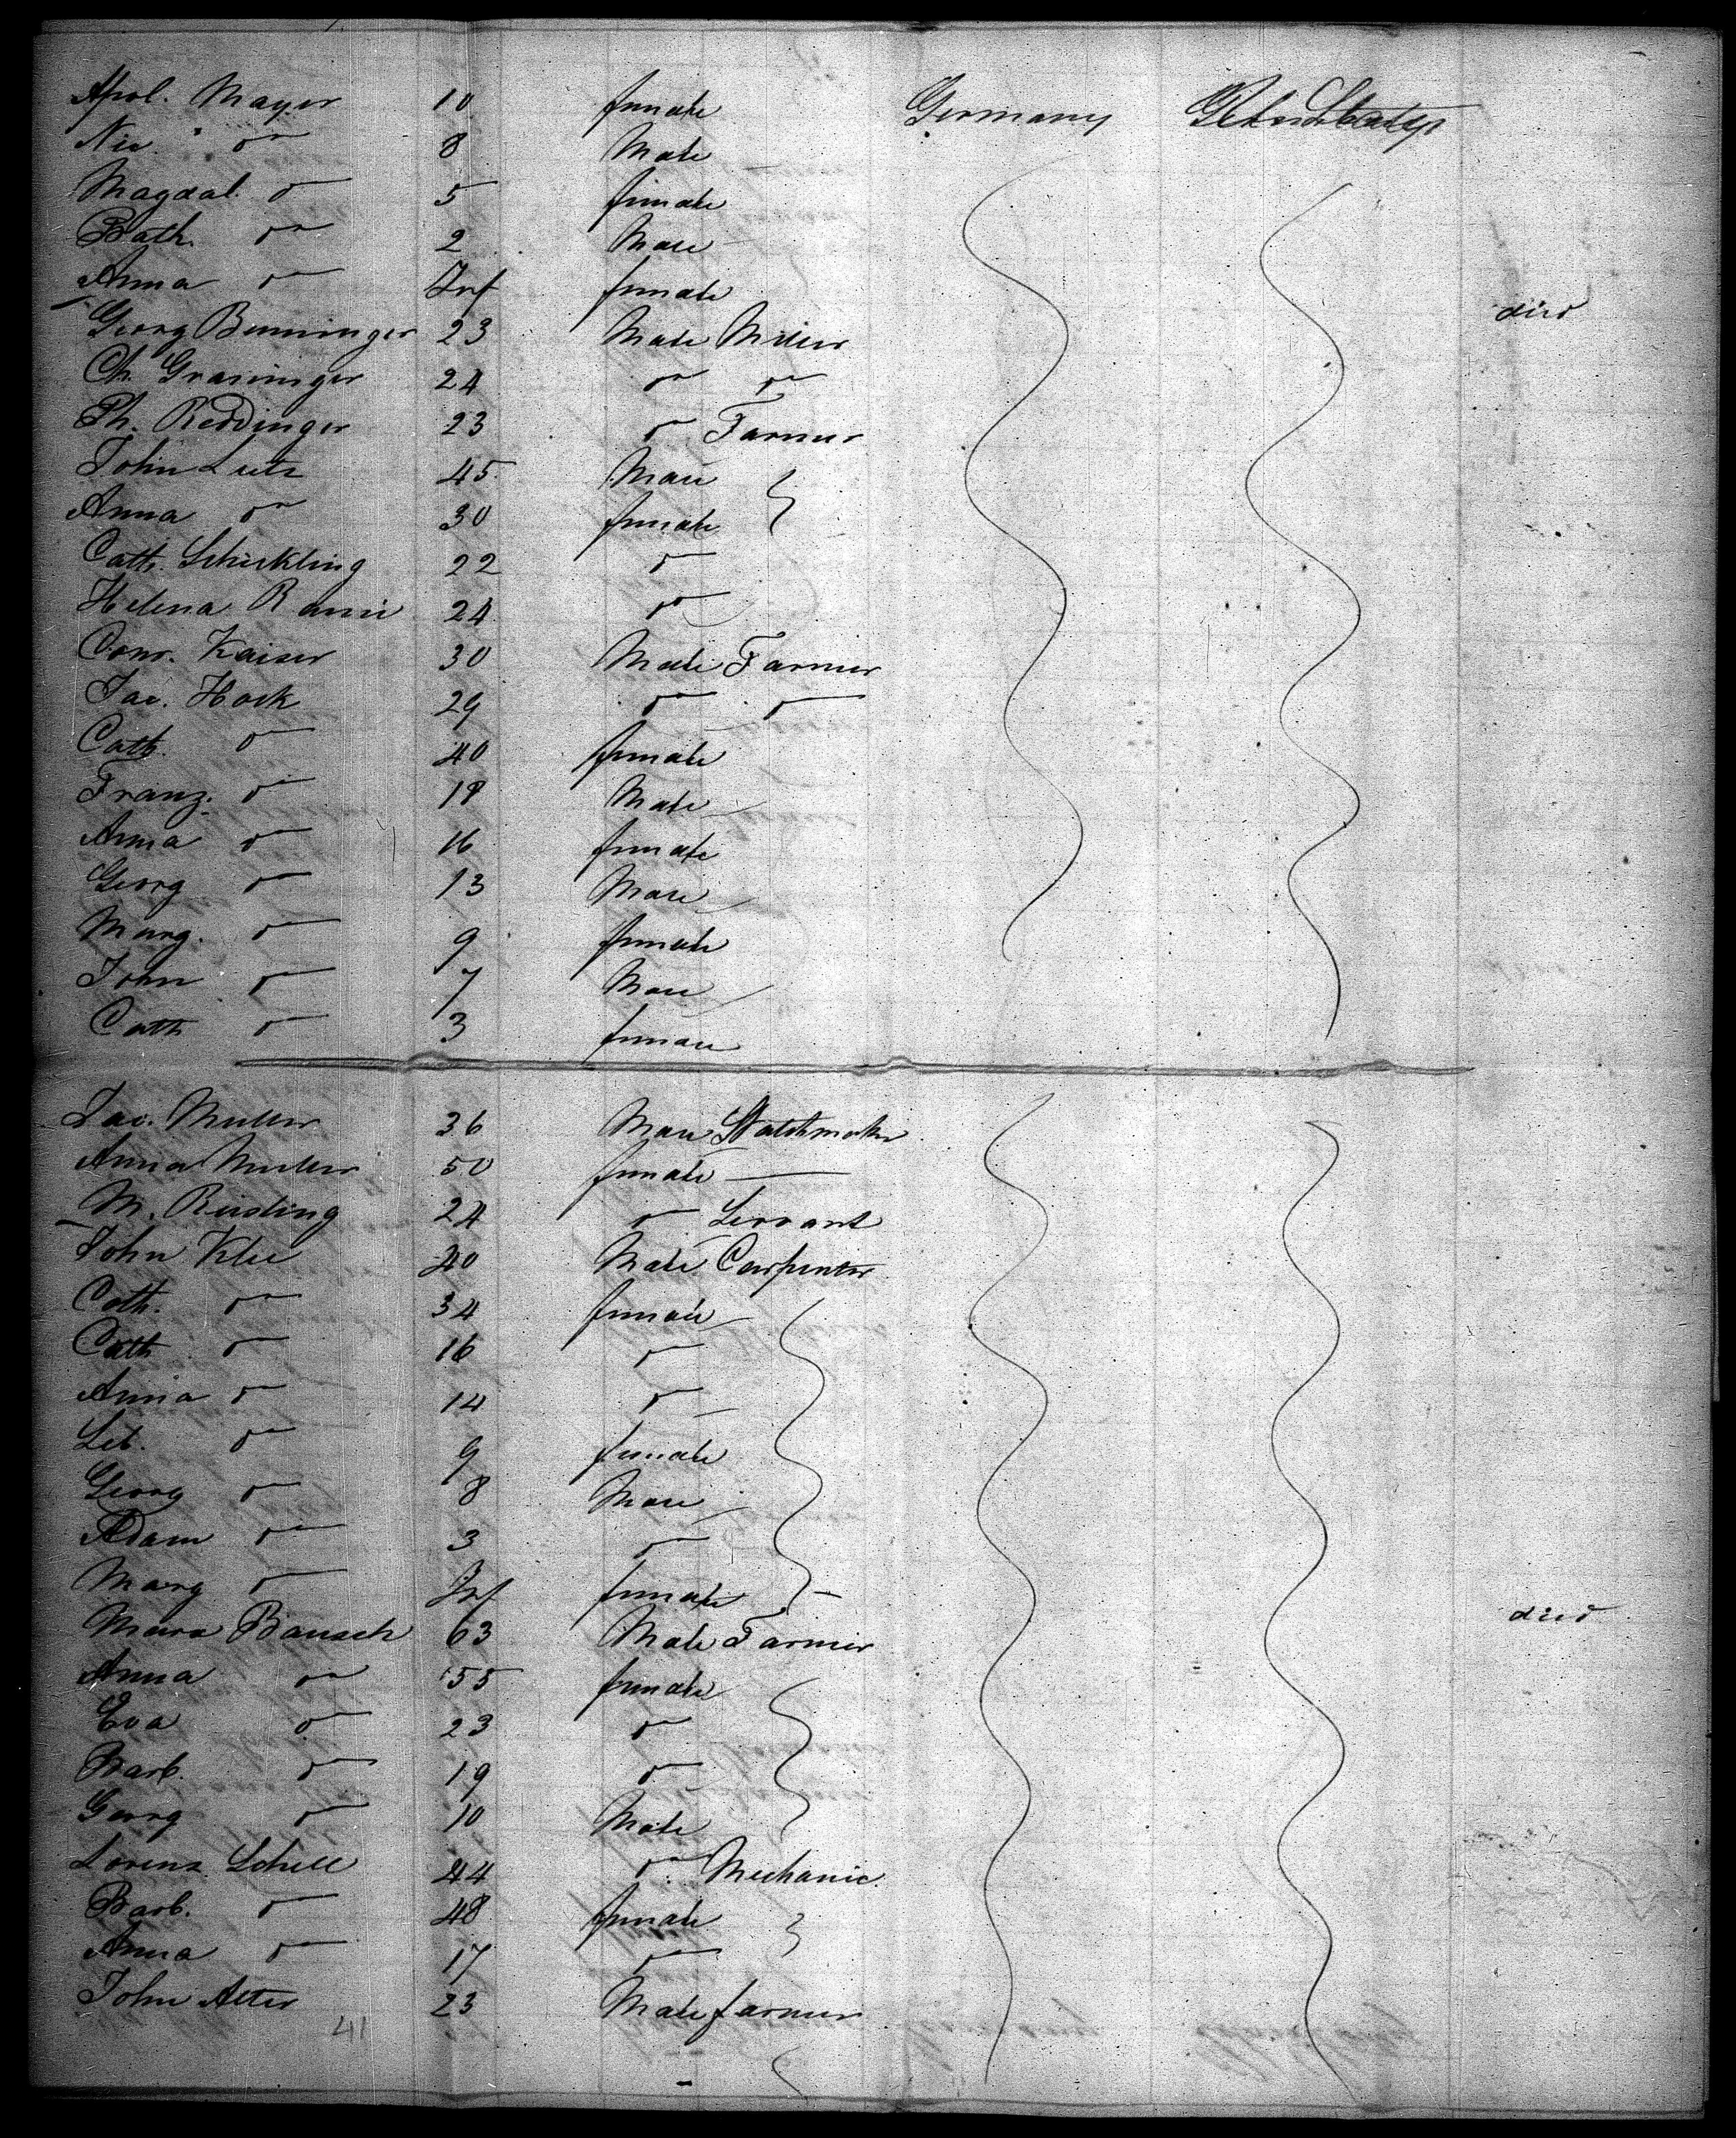 Apol. Mayer 10 female Germany
Nic. " do 8 Male
Magdal. do 5 female
Bath. do 2 Male
Anna do Inf female died
Georg Benninger 23 Male Miller
Ch. Graninger 24 do do
Ph. Reddinger 23 do Farmer
John Lutz 45 Male
Anna do 30 female
Cath. Schickling 22 do
Helena 24 do
Conr. Kaiser 30 Male Farmer
Jac. Hock 29 do do
Cath. do 40 female
Franz. do 18 Male
Anna do 16 female
Georg do 13 Male
Marg. do 9 female
John do 7 Male
Cath do 3 female
Jac. Muller 36 Male Watchmaker
Anna Muller 50 female —
M. Reisling 24 do Servant
John Klee 40 Male Carpenter
Cath. do 34 female
Cath do 16 do
Anna do 14 do
do 9 female
Georg do 8 Male
Adam do 3 do
Marg do Inf female died
Bausch 63 Male Farmer
Anna do 55 female
Eva do 23 do
Barb. do 19 do
Georg do 10 Male
Lorenz Schell 44 do Mechanic.
Barb. do 48 female
Anna do 17 do
John Alter 23 Male farmer
41